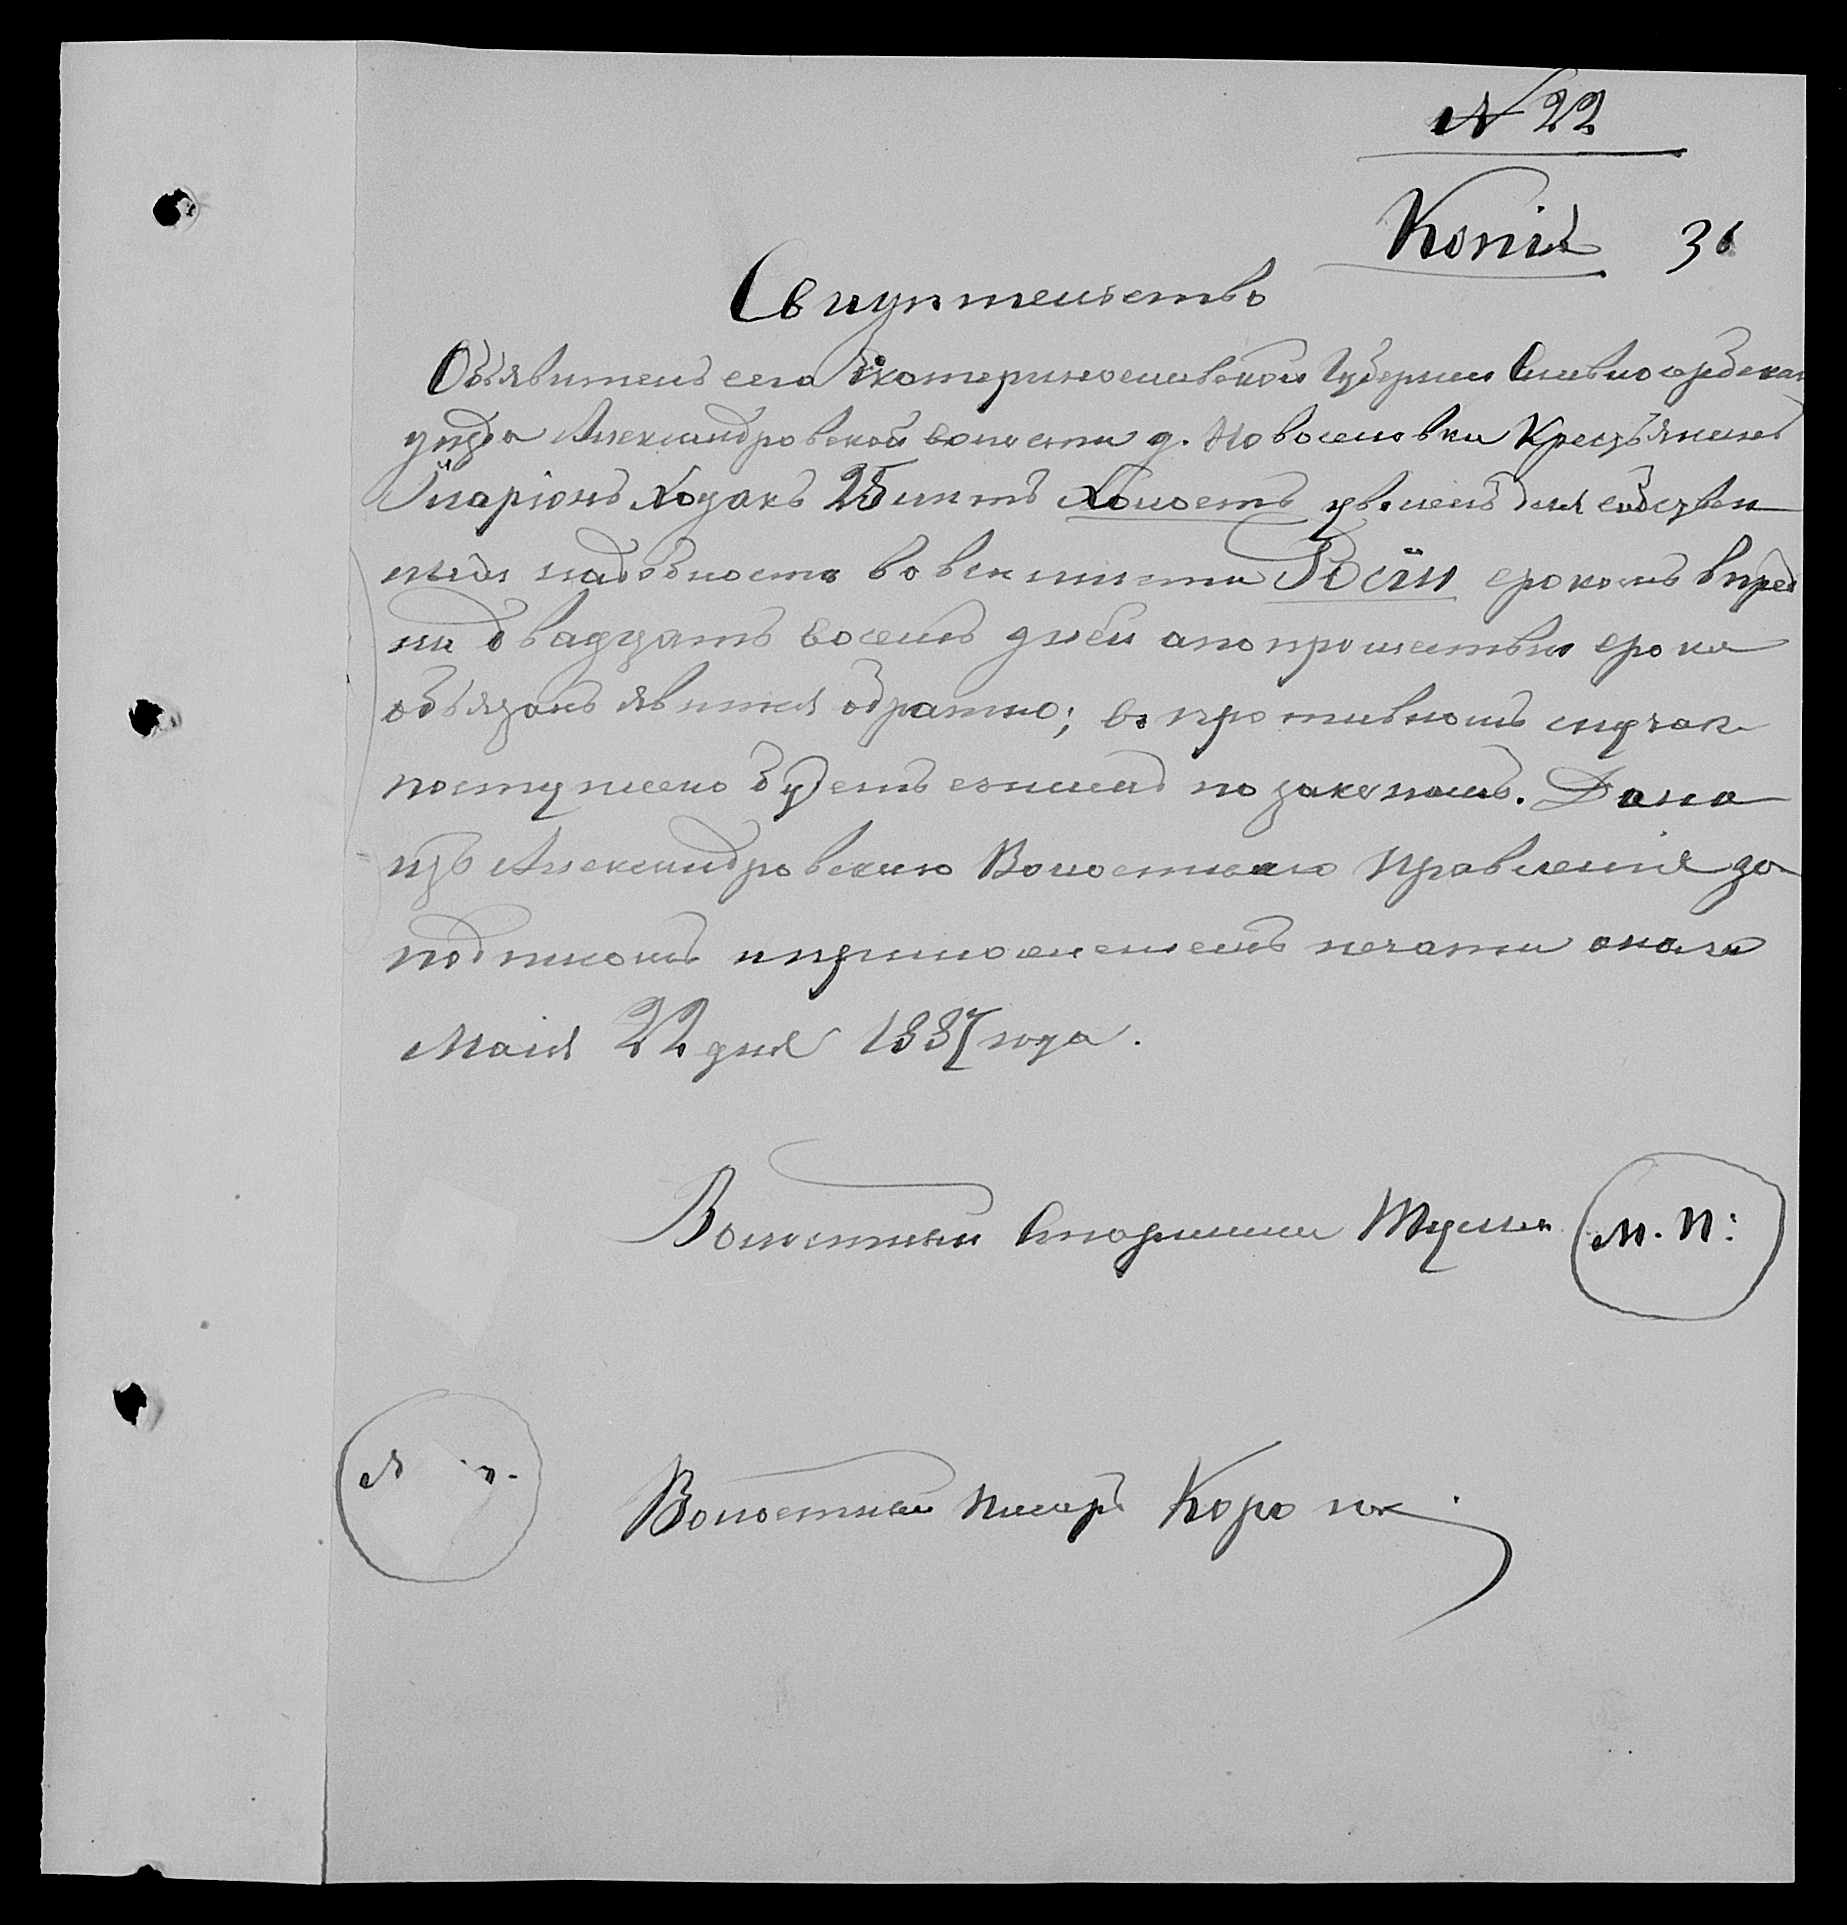 № 22
Копія 36
Свидѣтельство
Объявитель сего Екатеринославской Губерніи Славяносербскаго
уѣзда Александровской волости д. Новоселовки Крестьянинъ
Иларіонъ Ходакъ 25 лѣтъ Холостъ уволенъ для собствен
ной надобности во всѣ мѣста Росіи срокомъ впредь
на двадцать восемь дней апопрошествіи срока
объязанъ явится обратно; въ противномъ случаѣ
поступлено будетъ снимъ по законамъ. Дано
изъ Александровскаго Волостнаго Правленія за
подписомъ иприложеніемъ печати онаго
Маія 22 дня 1887 года.
Волостный Старшина М. П:
М. П.
Волостный писарь